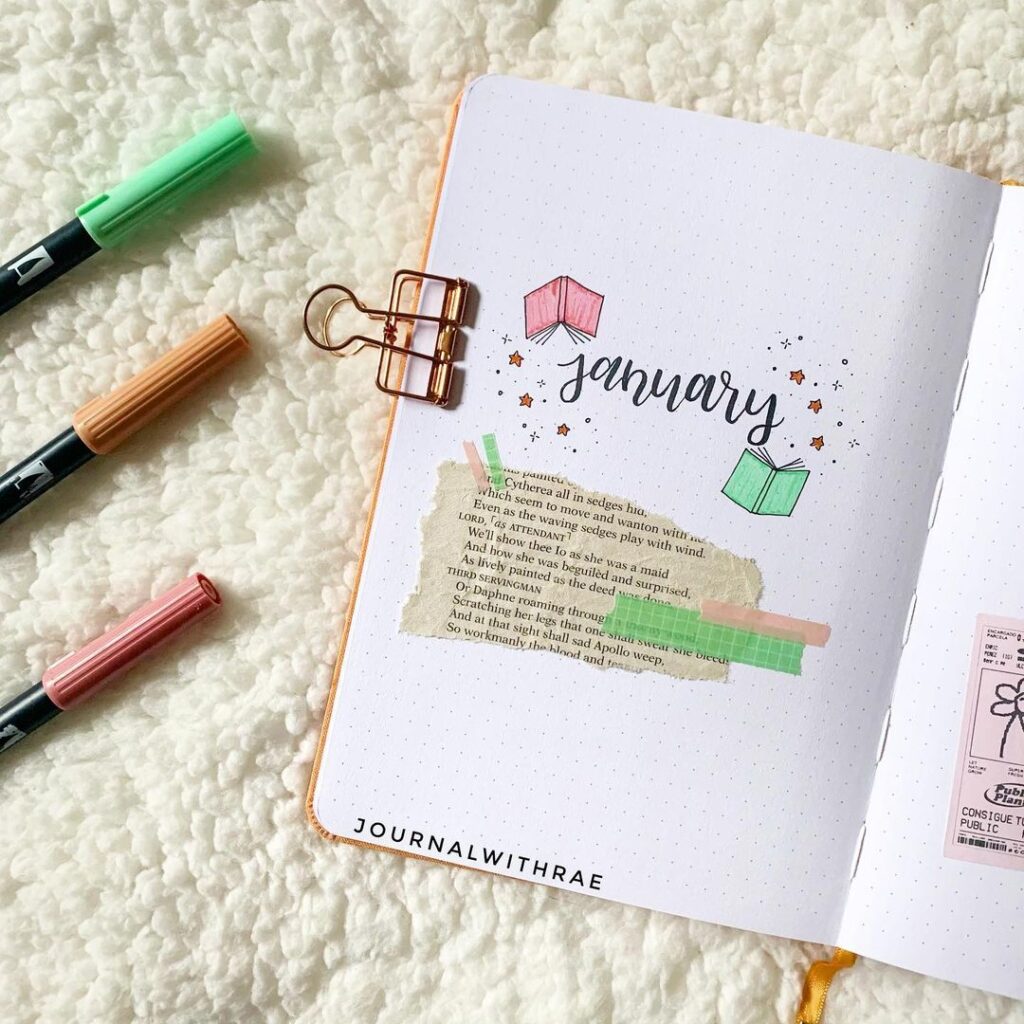 january
painted
Cytherea all in sedges hid,
Which seem to move and wanton with
Even as the waving sedges play with wind.
LORD, ⌜as ATTENDANT⌝
We'll show thee Io as she was a maid
And how she was beguilèd and surprised,
As lively painted as the deed was done.
THIRD SERVINGMAN
Or Daphne roaming through
Scratching her legs that one shall swear she bleeds
And at that sight shall sad Apollo weep,
So workmanly the blood and
JOURNALWITHRAE
ENCARGADO
PARCELA
LET
NATURE
GROW
CONSIGUE TU
PUBLIC